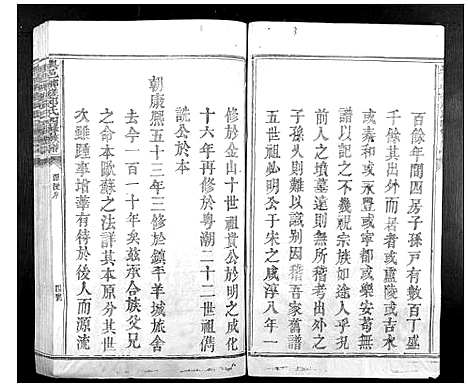 百餘年間四房子孫戸有數百丁盛
千億其出外而居者或廬陵或吉水
或泰和或萬安或寧都或樂安苟無
譜以記之不幾視宗族如途人乎況
前人之墳墓遠則無所稽考出外之
子孫久則難以識别因稽吾家舊譜
五世祖勗明公于宋之咸淳八年一
修於金山十世祖貴公於明之成化
十六年再修於粵潮二十二世祖儁
誂公於本
朝康熙五十三年三修於鎮平羊城旅舍
去今一百一十年矣茲承合族父兄
之命本歐蘇之法詳其本原分其世
次雖踵事增華有待於後人而源流